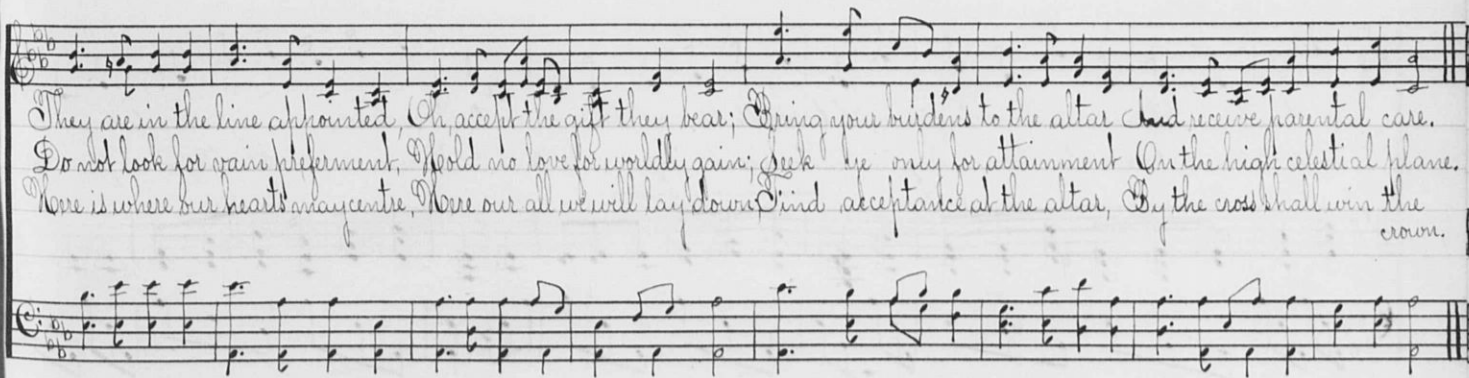 They are in the line appointed, Oh, accept the gift they bear; Bring your burdens to the altar And receive parental care.
Do not look for vain preferment, Hold no love for worldly gain; Seek ye only for attainment On the high celestial plane.
Here is where our hearts may centre, Here our all we will lay down; Find acceptance at the altar, By the cross shall win the
crown.